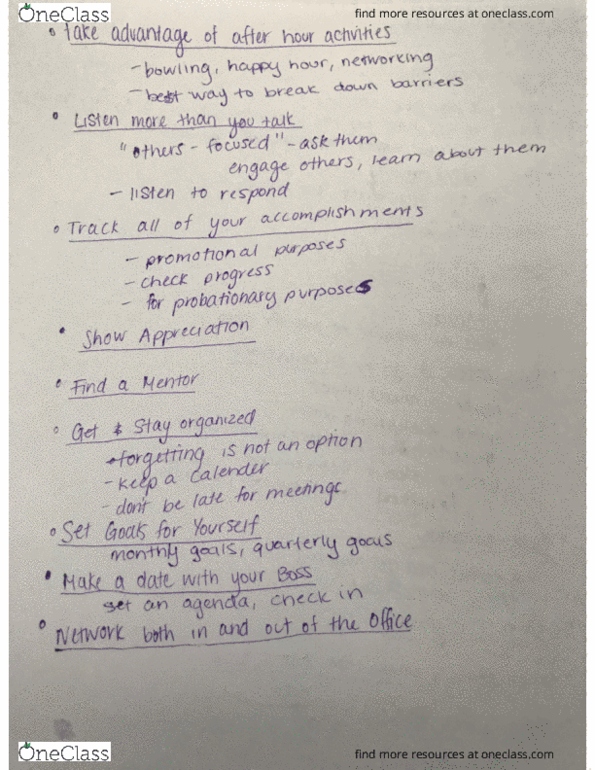 OneClass
find more resources at oneclass.com
• Take advantage of after hour activities
- bowling, happy hour, networking
- best way to break down barriers
• Listen more than you talk
"others - focused" - ask them
engage others, learn about them
- listen to respond
• Track all of your accomplishments
- promotional purposes
- check progress
- for probationary purposes
• Show Appreciation
• Find a Mentor
• Get & Stay organized
- forgetting is not an option
- keep a calender
- don't be late for meetings
• Set Goals for Yourself
monthly goals, quarterly goals
• Make a date with your Boss
set an agenda, check in
• Network both in and out of the office
OneClass
find more resources at oneclass.com